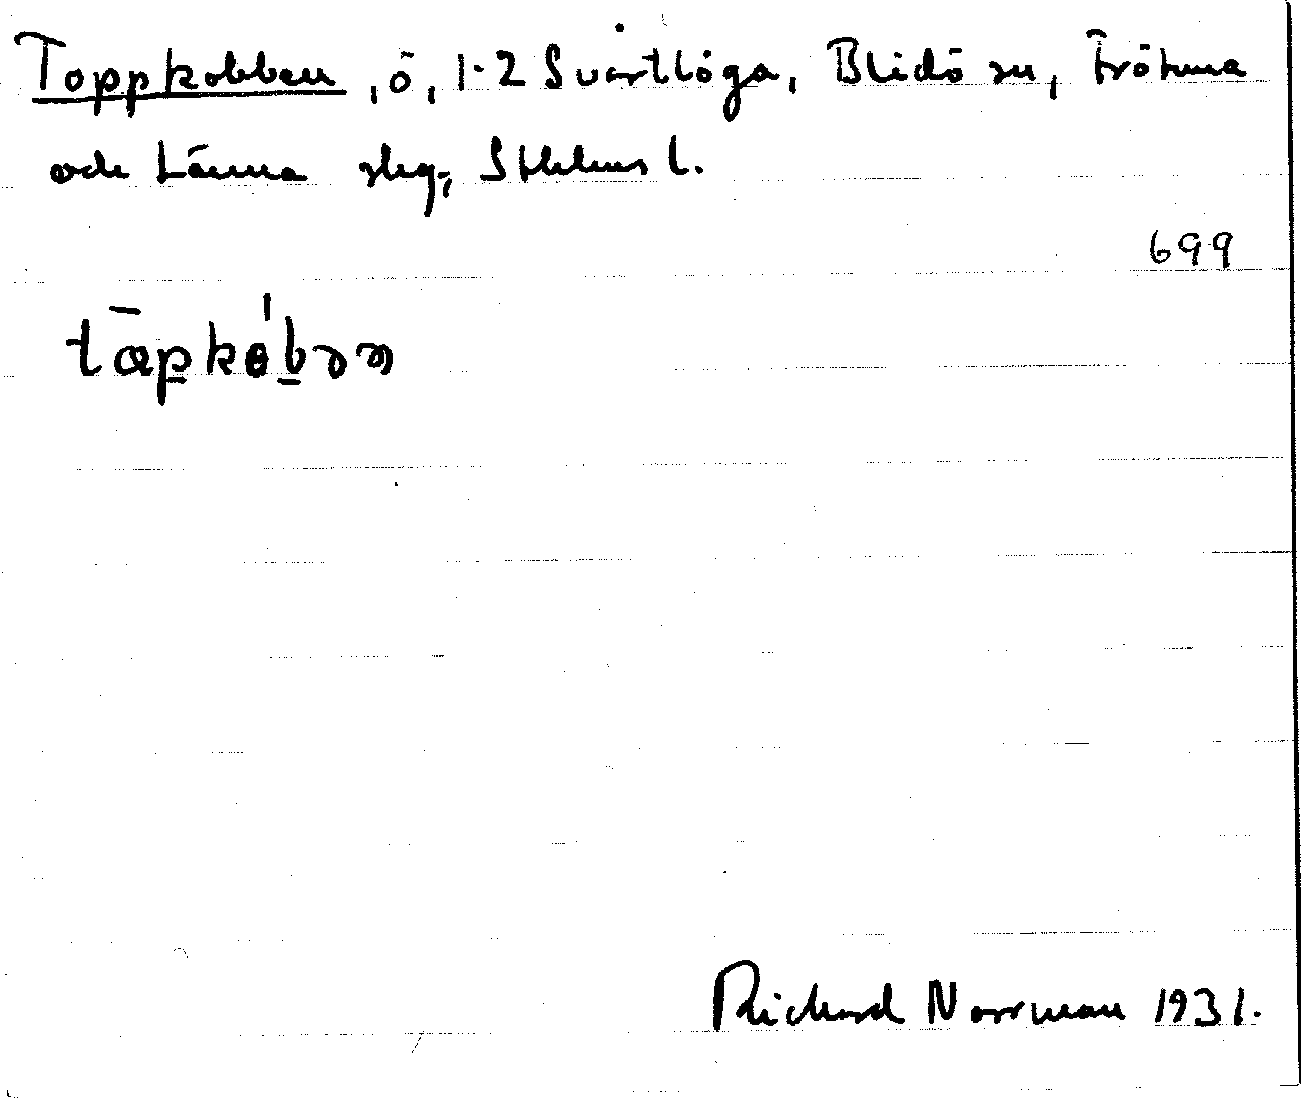 Toppkobben, ö, 1-2 Svartlöga, Blidö sn, Frötuna
och Länna skg, Sthlms l.
699
Richard Norrman 1931.